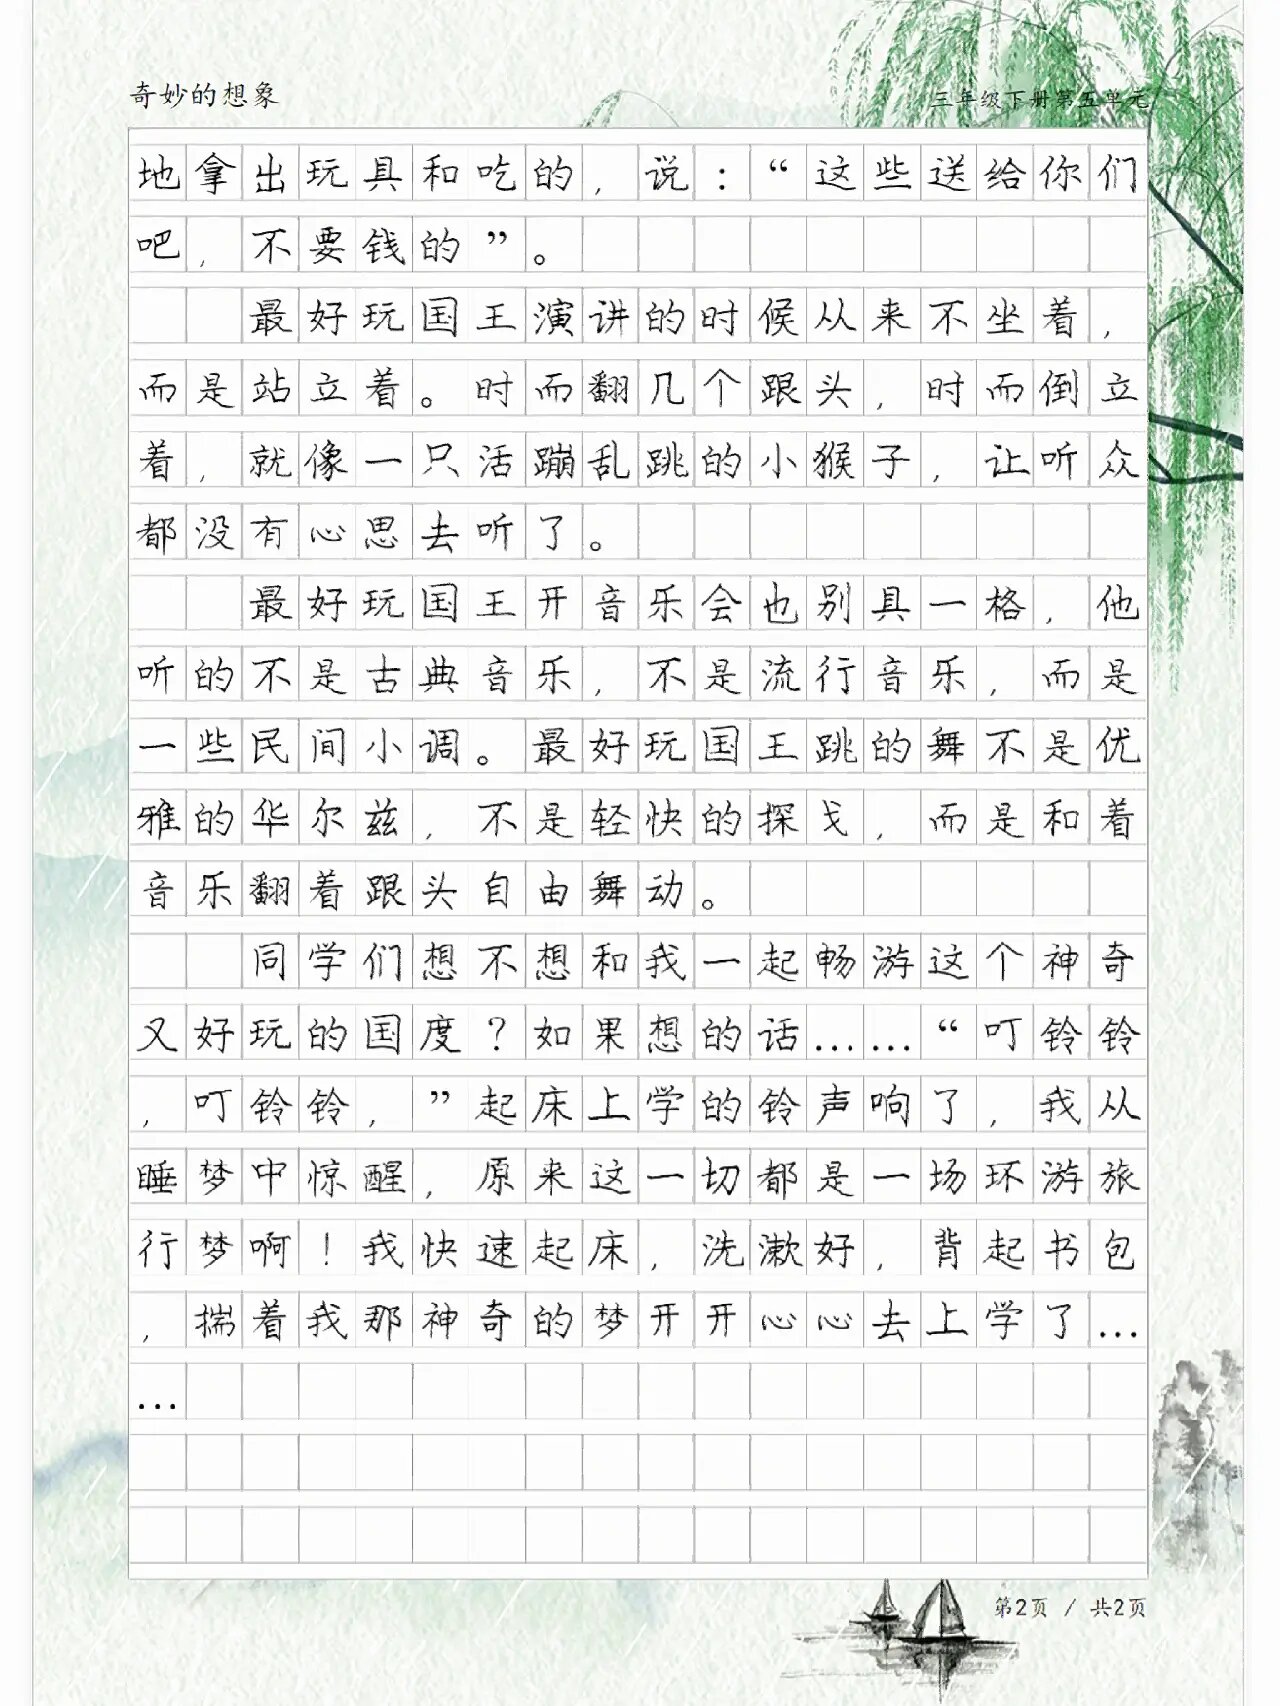 奇妙的想象
三年级下册第五单元
地拿出玩具和吃的，说：“这些送给你们
吧，不要钱的”。
最好玩国王演讲的时候从来不坐着，
而是站立着。时而翻几个跟头，时而倒立
着，就像一只活蹦乱跳的小猴子，让听众
都没有心思去听了。
最好玩国王开音乐会也别具一格，他
听的不是古典音乐，不是流行音乐，而是
一些民间小调。最好玩国王跳的舞不是优
雅的华尔兹，不是轻快的探戈，而是和着
音乐翻着跟头自由舞动。
同学们想不想和我一起畅游这个神奇
又好玩的国度？如果想的话……“叮铃铃
，叮铃铃，”起床上学的铃声响了，我从
睡梦中惊醒，原来这一切都是一场环游旅
行梦啊！我快速起床，洗漱好，背起书包
，揣着我那神奇的梦开开心心去上学了…
…
第2页 / 共2页